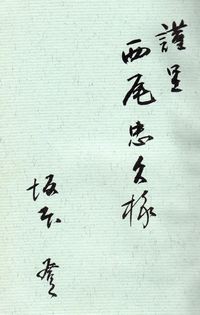 謹呈
西尾忠久様
坂本